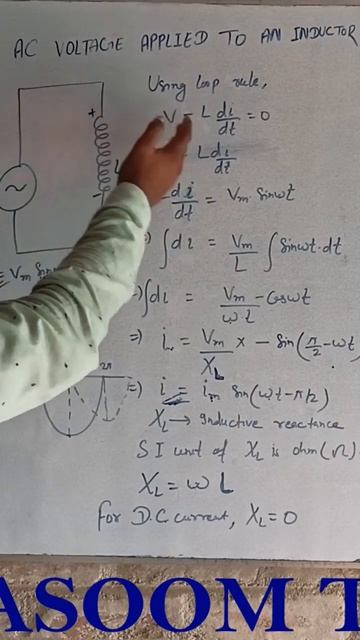 AC VOLTAGE APPLIED TO AN INDUCTOR
Using loop rule,
V - L di/dt = 0
L di/dt
di/dt = Vm sinωt
∫di = Vm/L ∫sinωt·dt
+
=) ∫di = Vm/ωL - cosωt
= Vm sin
=) i = Vm/XL x - sin(π/2 - ωt
2π
=) i = im sin(ωt - π/2)
XL → inductive reactance
SI unit of XL is ohm (Ω)
XL = ωL
for D.C current, XL = 0
ASOOM T